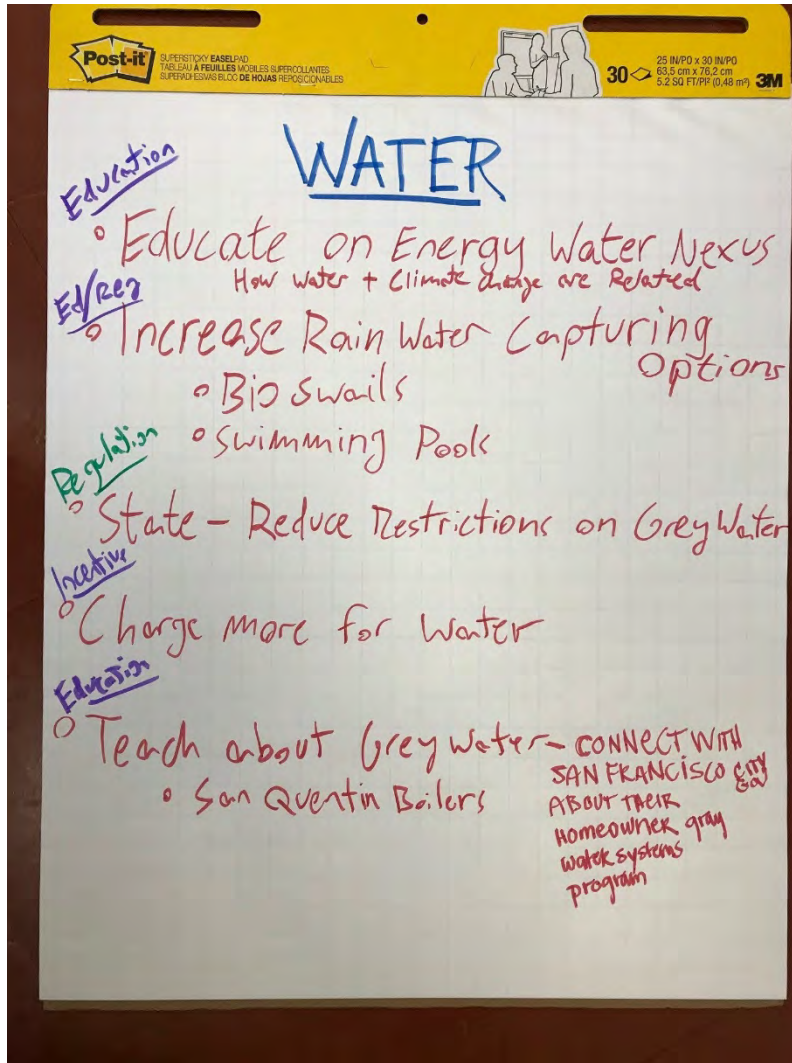 Post-it
SUPERSTICKY EASELPAD
TABLEAU À FEUILLES MOBILES SUPERCOLLANTES
SUPERADHESIVAS BLOC DE HOJAS REPOSICIONABLES
30
25 IN/PO x 30 IN/PO
63,5 cm x 76,2 cm
5.2 SQ FT/PI² (0,48 m²)
3M
WATER
Education
Educate on Energy Water Nexus
How Water + Climate Change are Related
Ed/Reg
Increase Rain Water Capturing
Options
Bio Swails
Swimming Pools
Regulation
State - Reduce Restrictions on Grey Water
Incentive
Charge more for water
Education
Teach about Grey water - CONNECT WITH
SAN FRANCISCO CITY
ABOUT THEIR
HOMEOWNER gray
water systems
program
San Quentin Boilers